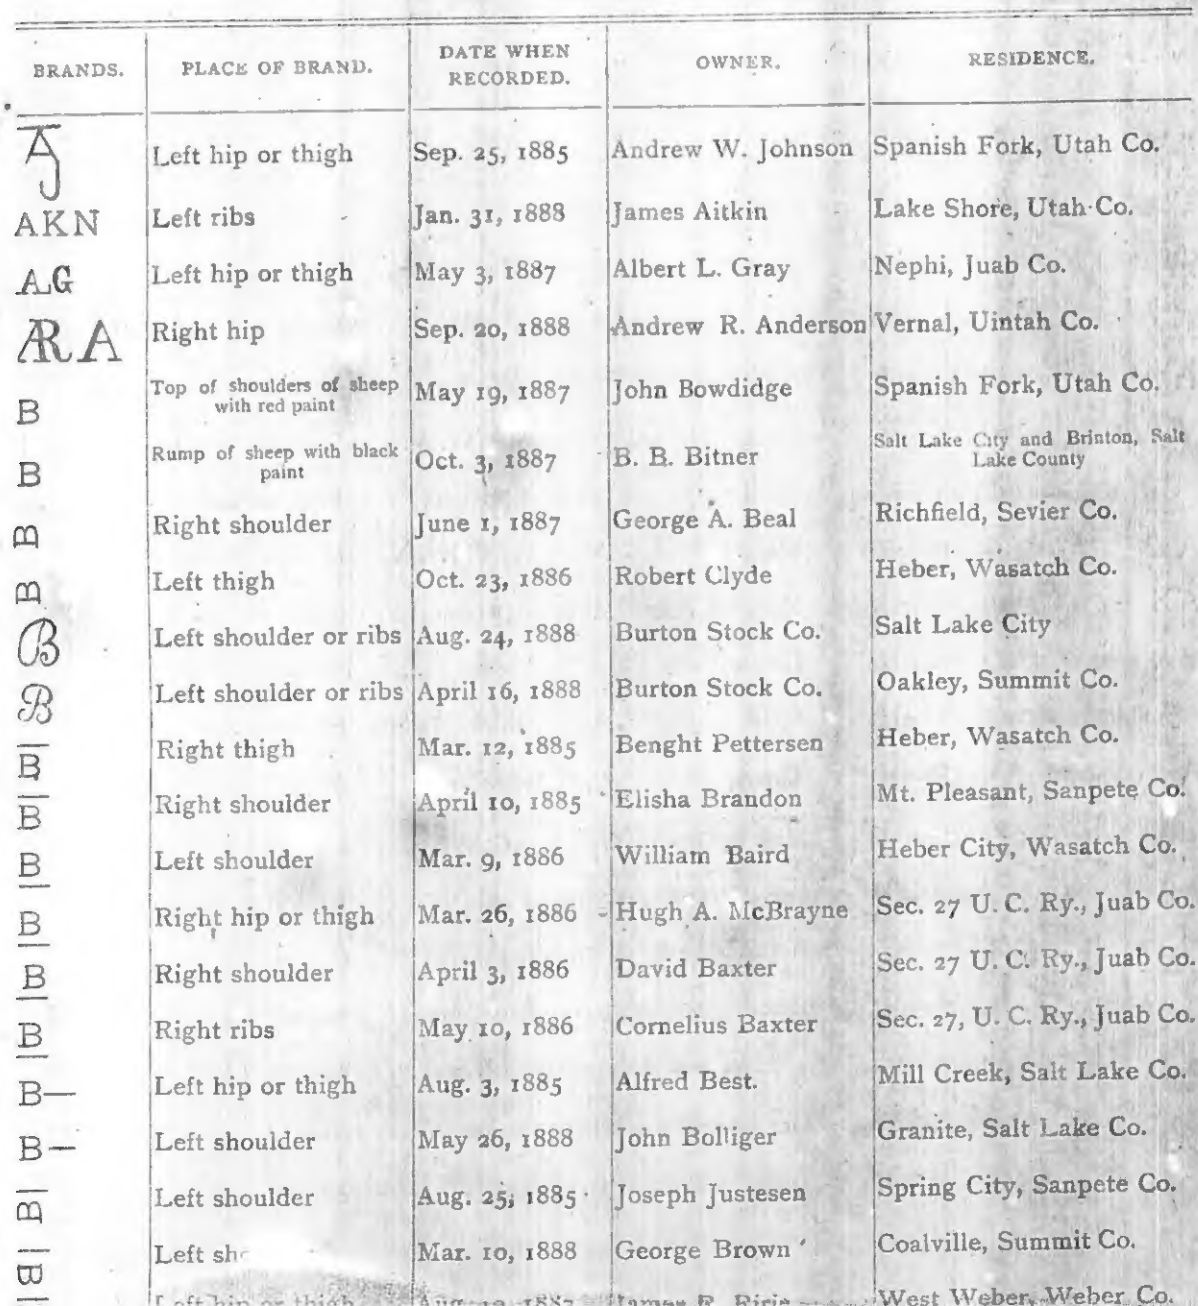 BRANDS. PLACE OF BRAND. DATE WHEN RECORDED. OWNER. RESIDENCE.
AJ Left hip or thigh Sep. 25, 1885 Andrew W. Johnson Spanish Fork, Utah Co.
AKN Left ribs Jan. 31, 1888 James Aitkin Lake Shore, Utah Co.
AG Left hip or thigh May 3, 1887 Albert L. Gray Nephi, Juab Co.
ARA Right hip Sep. 20, 1888 Andrew R. Anderson Vernal, Uintah Co.
B Top of shoulders of sheep with red paint May 19, 1887 John Bowdidge Spanish Fork, Utah Co.
B Rump of sheep with black paint Oct. 3, 1887 B. B. Bitner Salt Lake City and Brinton, Salt Lake County
B Right shoulder June 1, 1887 George A. Beal Richfield, Sevier Co.
B Left thigh Oct. 23, 1886 Robert Clyde Heber, Wasatch Co.
B Left shoulder or ribs Aug. 24, 1888 Burton Stock Co. Salt Lake City
B Left shoulder or ribs April 16, 1888 Burton Stock Co. Oakley, Summit Co.
B Right thigh Mar. 12, 1885 Benght Pettersen Heber, Wasatch Co.
B Right shoulder April 10, 1885 Elisha Brandon Mt. Pleasant, Sanpete Co.
B Left shoulder Mar. 9, 1886 William Baird Heber City, Wasatch Co.
B Right hip or thigh Mar. 26, 1886 Hugh A. McBrayne Sec. 27 U. C. Ry., Juab Co.
B Right shoulder April 3, 1886 David Baxter Sec. 27 U. C. Ry., Juab Co.
B Right ribs May 10, 1886 Cornelius Baxter Sec. 27, U. C. Ry., Juab Co.
B— Left hip or thigh Aug. 3, 1885 Alfred Best. Mill Creek, Salt Lake Co.
B— Left shoulder May 26, 1888 John Bolliger Granite, Salt Lake Co.
B Left shoulder Aug. 25, 1885 Joseph Justesen Spring City, Sanpete Co.
B Left Mar. 10, 1888 George Brown Coalville, Summit Co.
Left hip or thigh Aug. 1887 James R. West Weber, Weber Co.